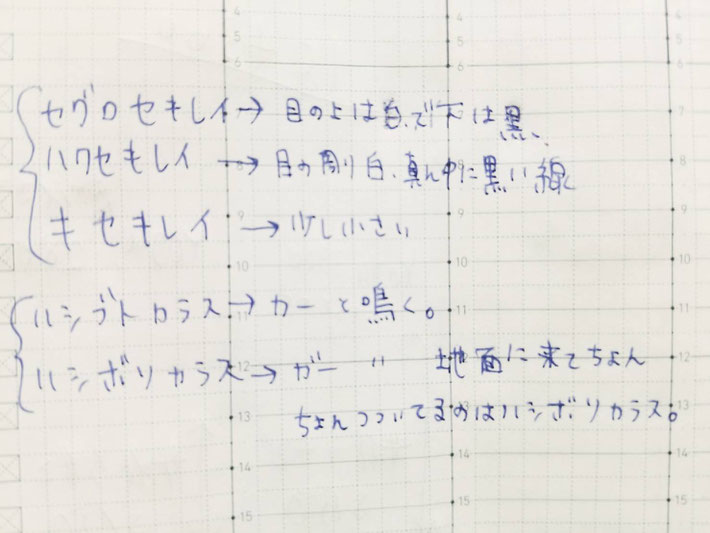 4 4 4
5 5 5
6 6 6
セグロセキレイ→目の上は白、で下は黒、 7
ハクセキレイ→目の周り白、真ん中に黒い線 8
キセキレイ→少し小さい 9
10 10 10
ハシブトカラス→カーと鳴く。 11
ハシボソカラス→ガー 〃 地面に来てちょん 12
ちょんつついてるのはハシボソカラス。
13 13 13
14 14 14
15 15 15